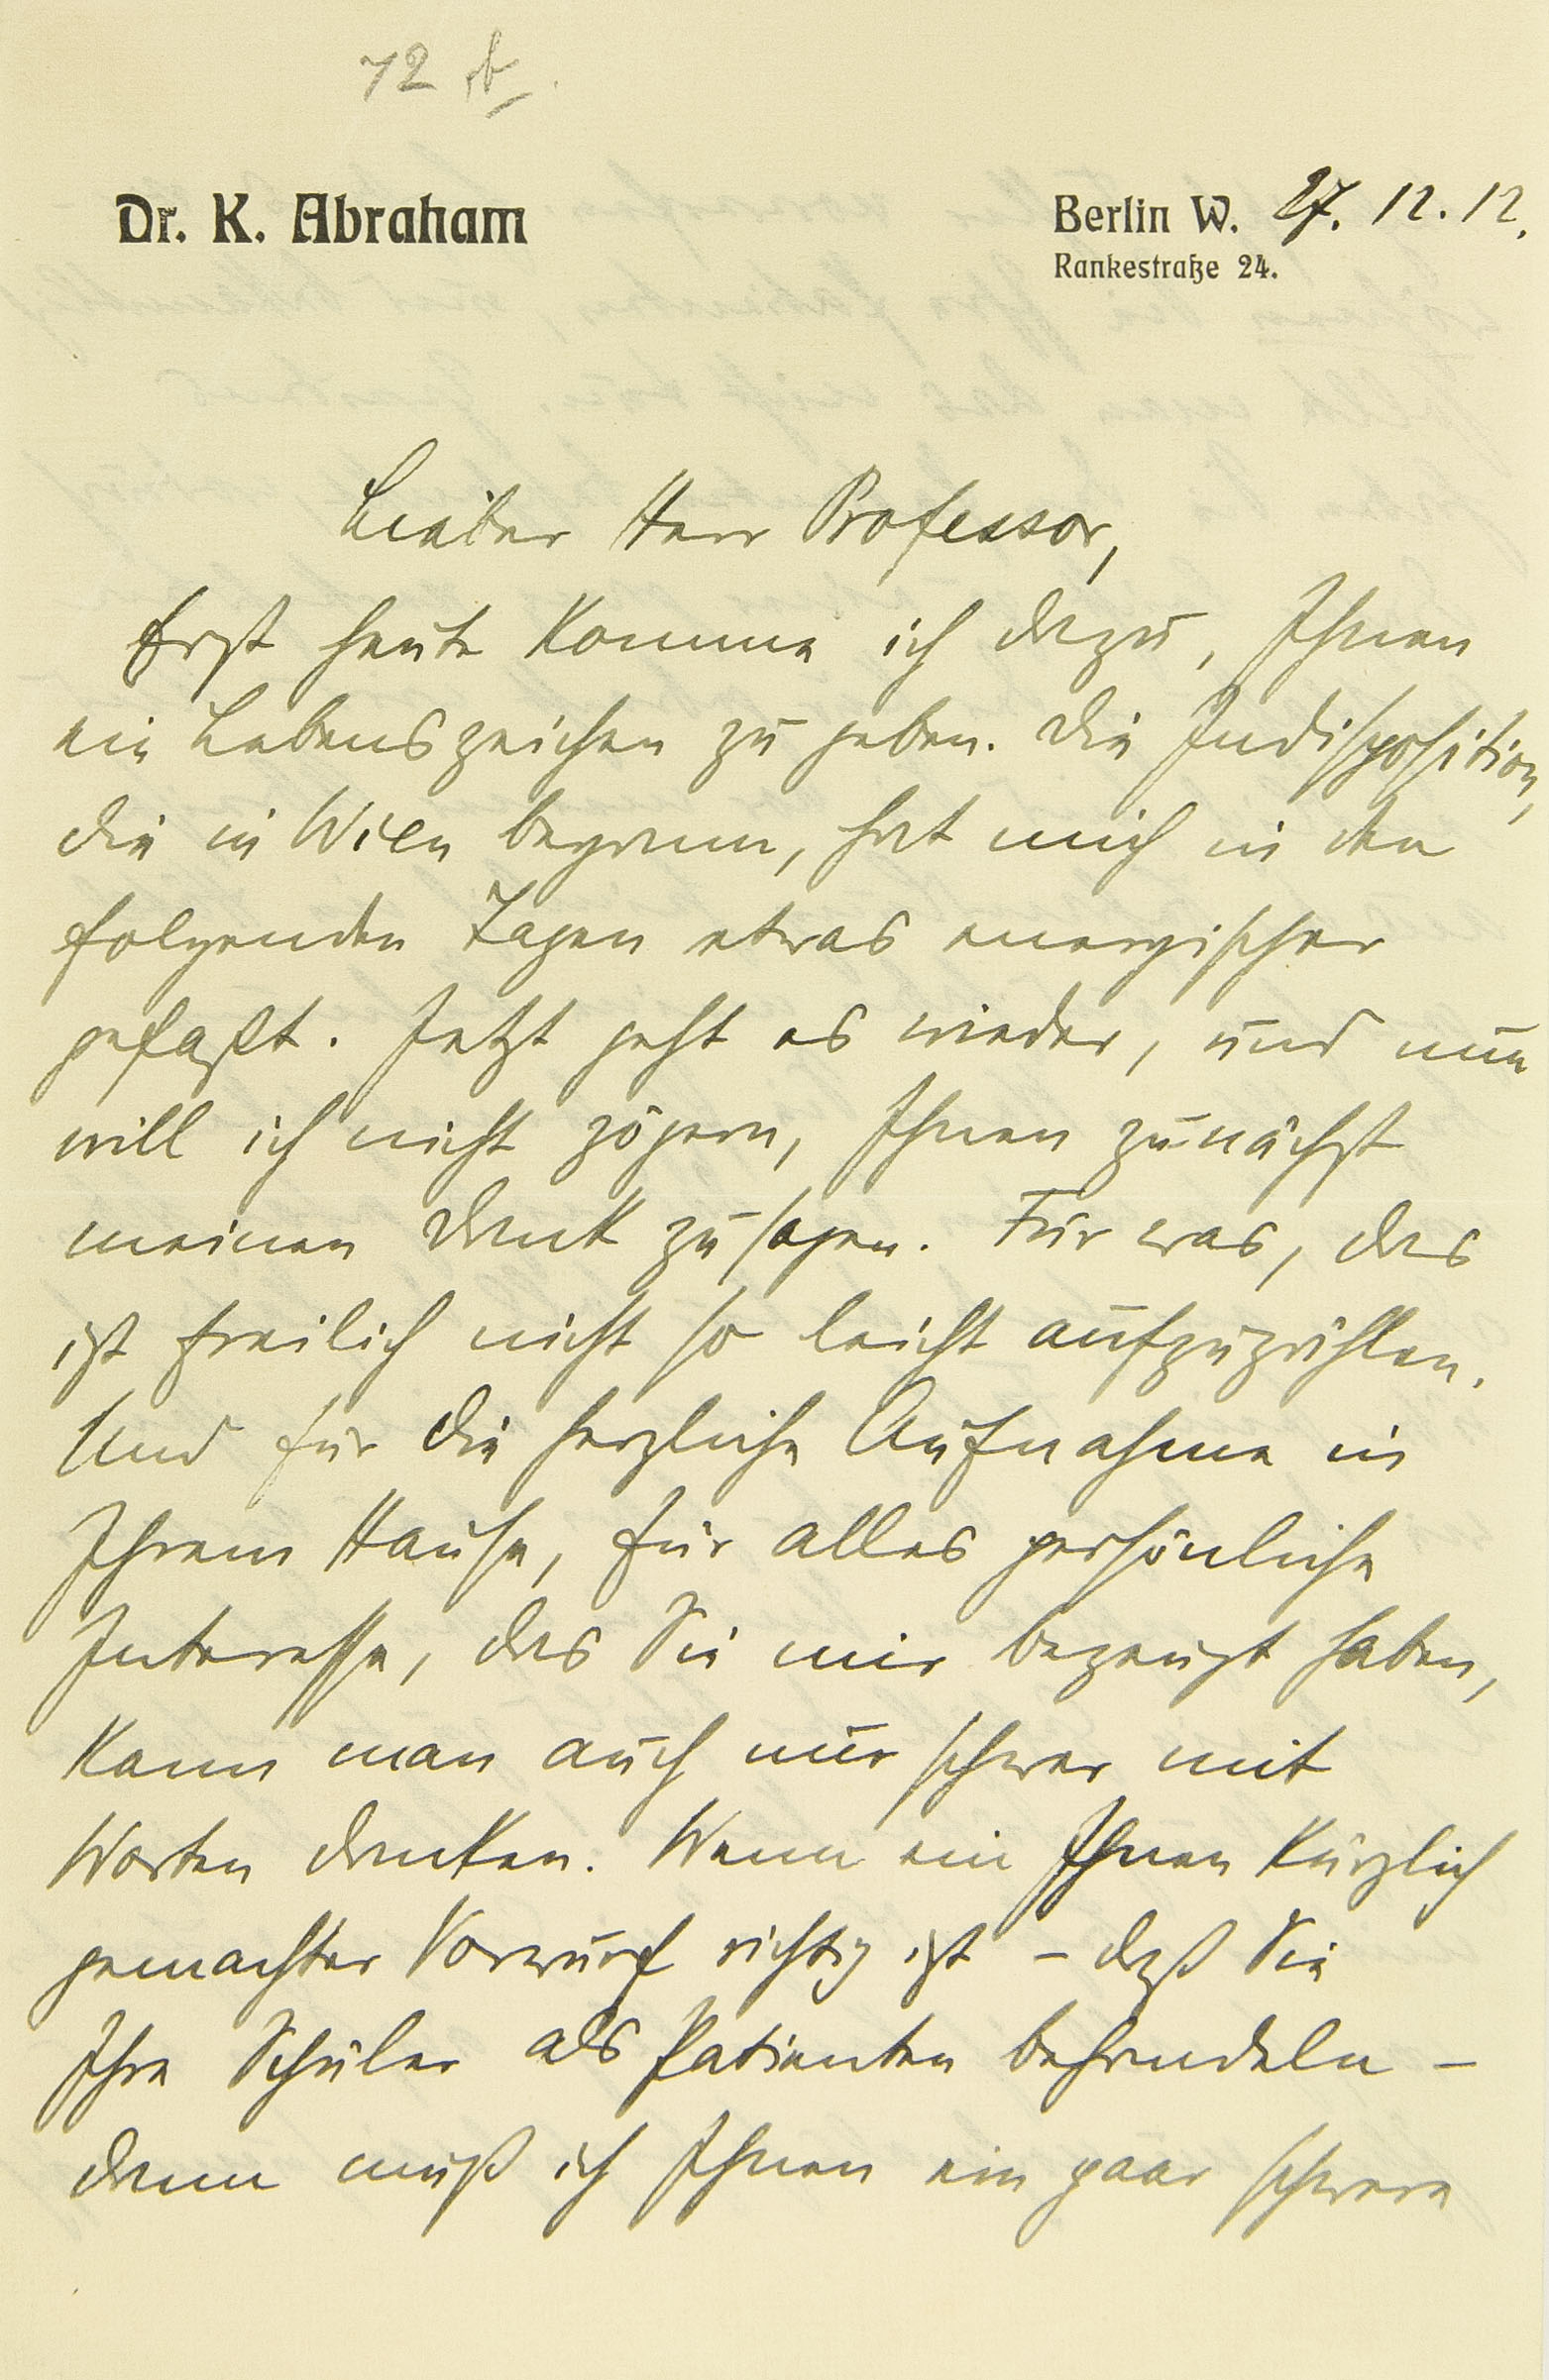 72 A
Dr. K. Abraham
Berlin W. 27. 12. 12.
Rankestraße 24.
Lieber Herr Professor,
Erst heute komme ich dazu, Ihnen
ein Lebenszeichen zu geben. Die Indisposition,
die in Wien begann, hat mich in den
folgenden Tagen etwas energischer
gefaßt. Jetzt geht es wieder, und nun
will ich nicht zögern, Ihnen zunächst
meinen Dank zu sagen. Für was, das
ist freilich nicht so leicht aufzuzählen.
Und für die herzliche Aufnahme in
Ihrem Hause, für alles persönliche
Interesse, das Sie mir bezeugt haben,
kann man auch nur schwer mit
Worten danken. Wenn ein Ihnen kürzlich
gemachter Vorwurf richtig ist – daß Sie
Ihre Schüler als Patienten behandeln –
dann muß ich Ihnen ein paar schwere